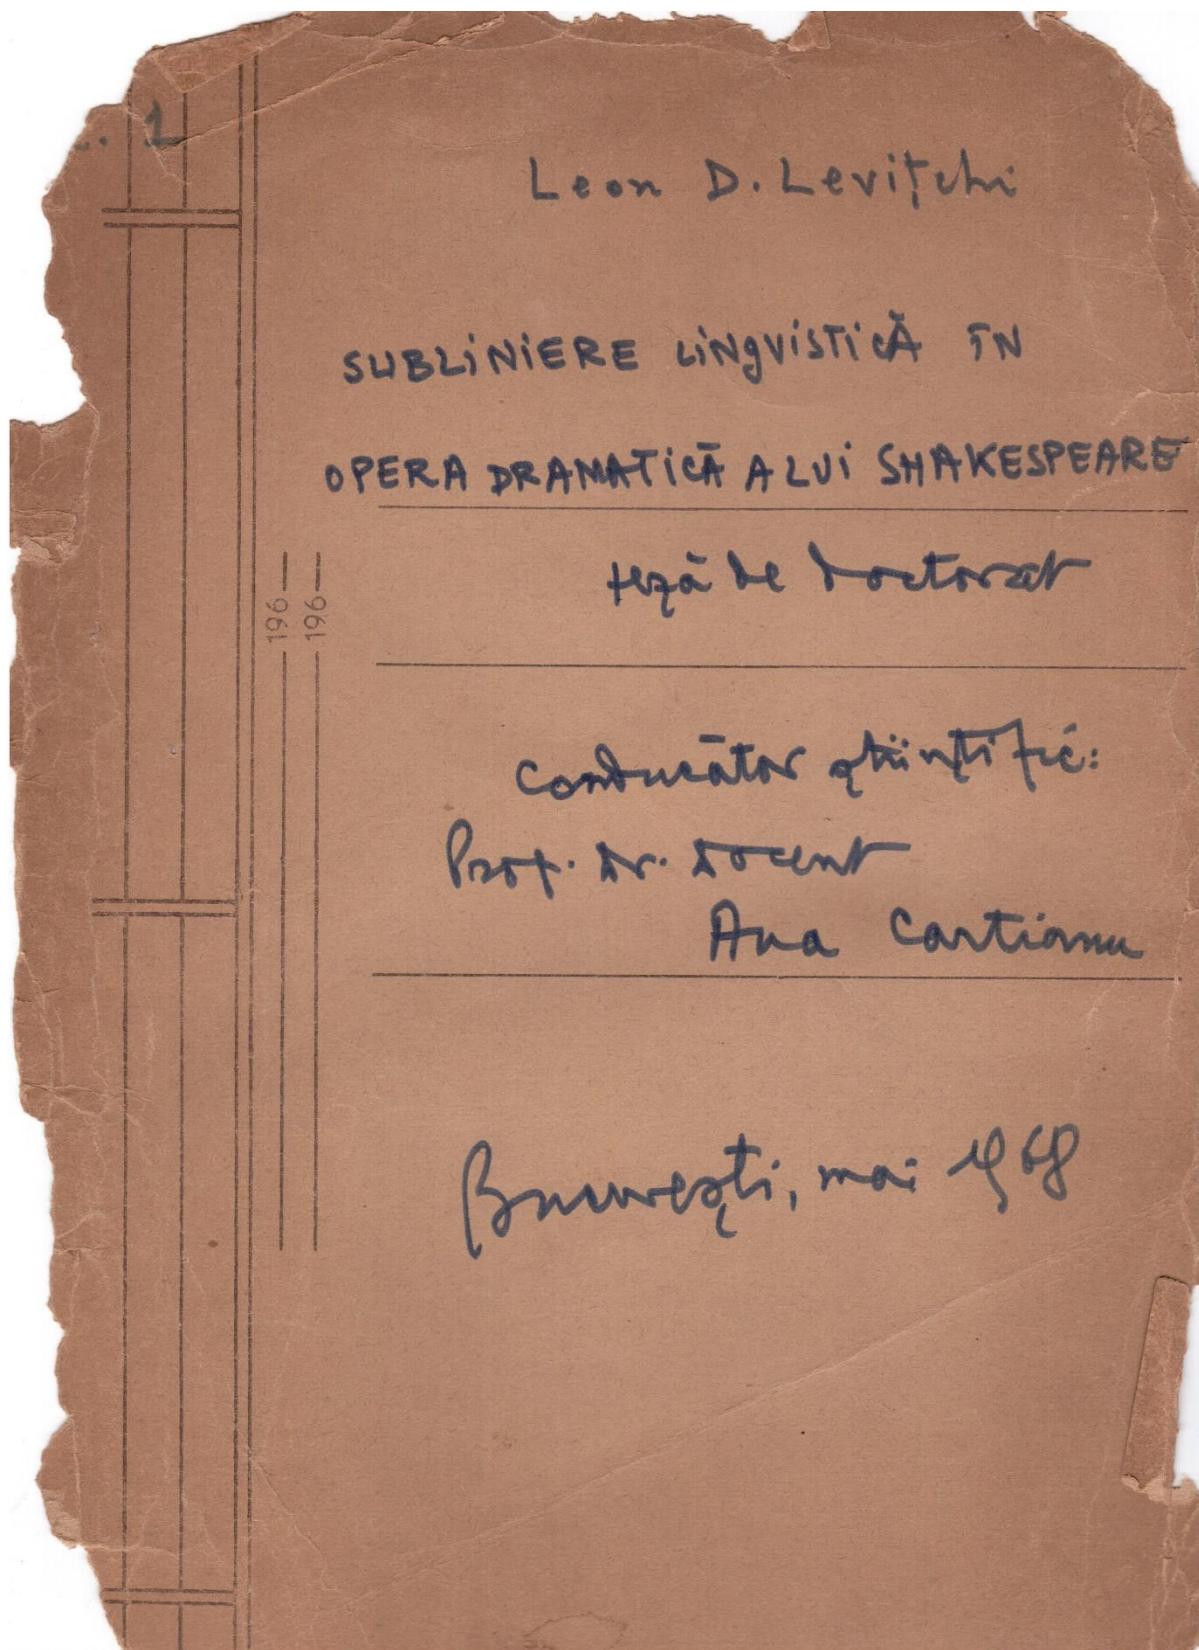 1
Leon D. Levițchi
SUBLINIERE LINGVISTICĂ ÎN
OPERA DRAMATICĂ A LUI SHAKESPEARE
teză de doctorat
196—
196—
Conducător științific:
Prof. Dr. Docent
Ana Cartianu
București, mai 1968